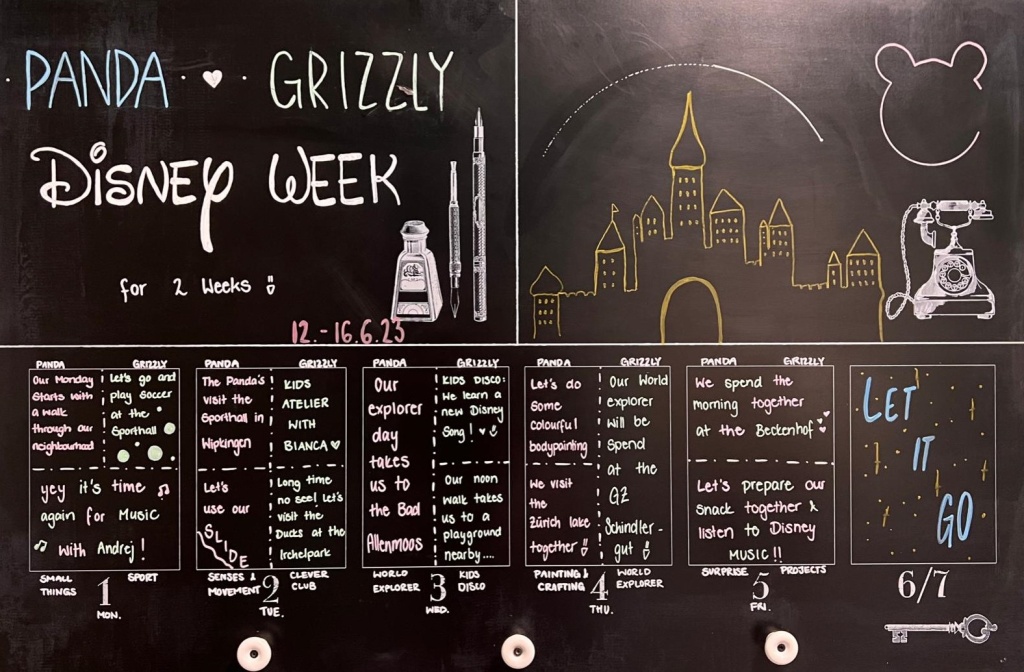 PANDA · GRIZZLY
DISNEY WEEK
for 2 Weeks
12.-16.6.23
PANDA
Our Monday
starts with
a walk
through our
neighbourhood
GRIZZLY
Let's go and
play soccer
at the
Sporthall
yey it's time
again for Music
with Andrej!
SMALL
THINGS
SPORT
1
MON.
PANDA
The Panda's
visit the
Sporthall in
Wipkingen
GRIZZLY
KIDS
ATELIER
WITH
BIANCA
Let's
use our
SLIDE
Long time
no see! Let's
visit the
Ducks at the
Irchelpark
SENSES &
MOVEMENT
CLEVER
CLUB
2
TUE.
PANDA
Our
explorer
day
takes
us to
the Bad
Allenmoos
GRIZZLY
KIDS DISCO:
We learn a
new Disney
Song!
Our noon
walk takes
us to a
playground
nearby....
WORLD
EXPLORER
KIDS
DISCO
3
WED.
PANDA
Let's do
some
colourful
bodypainting
We visit
the
Zürich lake
together
GRIZZLY
Our World
explorer
will be
spend
at the
GZ
Schindler-
gut
PAINTING &
CRAFTING
WORLD
EXPLORER
4
THU.
PANDA GRIZZLY
We spend the
morning together
at the Beckenhof
Let's prepare our
snack together &
listen to Disney
MUSIC!!
SURPRISE PROJECTS
5
FRI.
LET
IT
GO
6/7